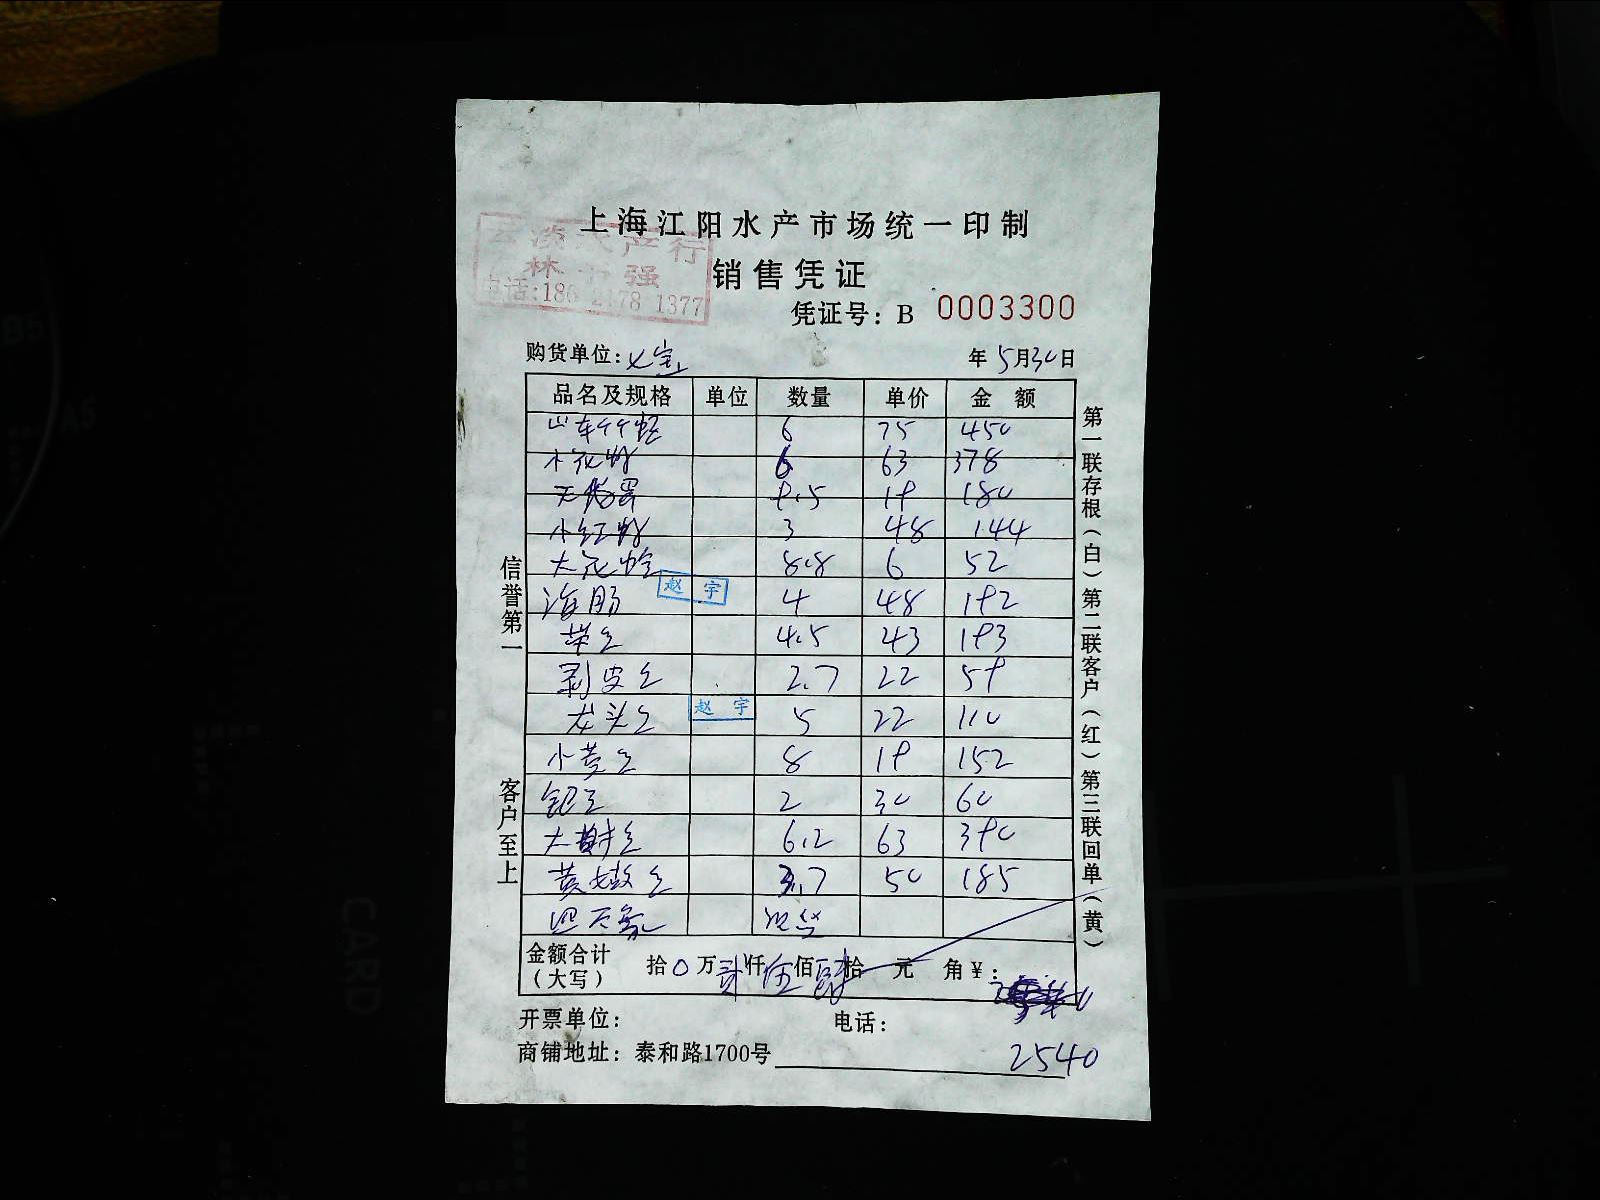 上海江阳水产市场统一印制
产行
林 强
电话:186 2178 1377
销售凭证
凭证号: B 0003300
购货单位: 七宝 年 5月30日
品名及规格 单位 数量 单价 金 额
6 75 450
小花 6 63 378
9.5 19 180
小红 3 48 144
大花蛤 8.8 6 52
海肠 4 48 192
带鱼 4.5 43 193
剥皮鱼 2.7 22 59
龙头鱼 5 22 110
小黄鱼 8 19 152
2 30 60
大 鱼 6.2 63 390
黄 鱼 3.7 50 185
赵 宇
赵 宇
金额合计
(大写) 拾 0 万 贰 仟 伍 佰 肆 拾 元 角 ¥:
2540
开票单位: 电话:
商铺地址: 泰和路1700号
信誉第一
客户至上
第一联存根(白)第二联客户(红)第三联回单(黄)